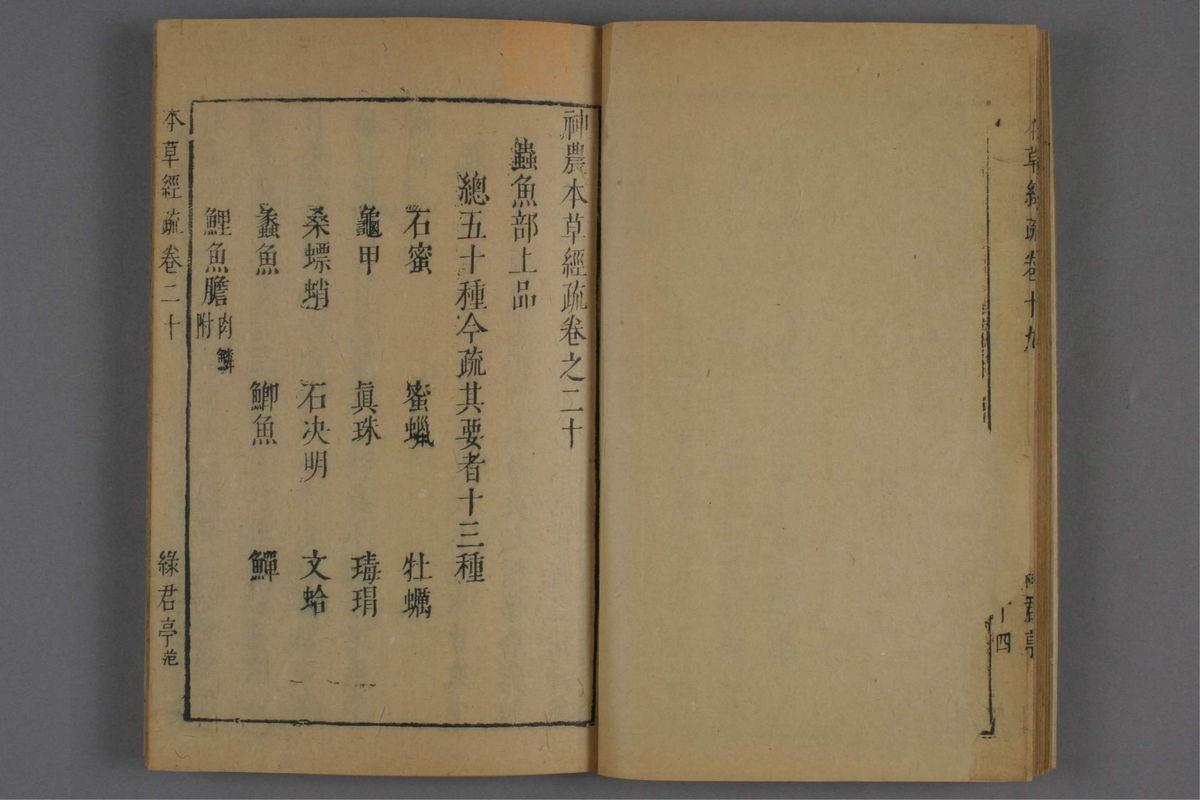 草經疏卷十九
亭
十四
神農本草經疏卷之二十
蟲魚部上品
總五十種今疏其要者十三種
石蜜 蜜蠟 牡蠣
龜甲 眞珠 瑇瑁
桑螵蛸 石决明 文蛤
蠡魚 鯽魚 鱓
鯉魚膽 肉鱗附
本草經疏 卷二十 綠君亭